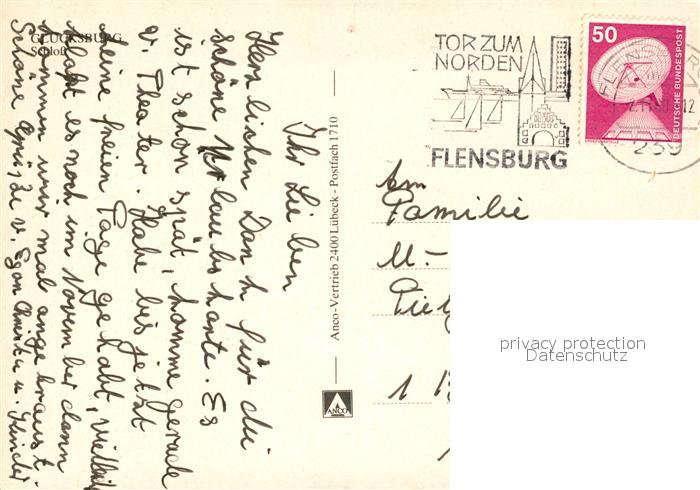 GLÜCKSBURG
Schloß
Ihr Lieben
Herzlichen Dank für die
schöne Urlaubskarte. Es
ist schon spät, komme gerade
v. Theater. Habe bis jetzt
keine freien Tage gehabt, vielleicht
klappt es noch im November dann
kommen wir mal angebraust.
Schöne Grüße v. Egon Christa u. Kinder
Anco-Vertrieb 2400 Lübeck - Postfach 1710
ANCO
TOR ZUM
NORDEN
FLENSBURG
50
DEUTSCHE BUNDESPOST
239
Familie
M.-
1
privacy protection
Datenschutz